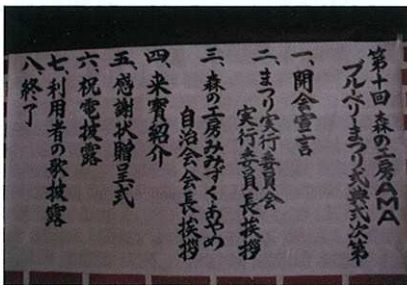 第十回 森の工房AMA
ブルーベリーまつり式典式次第
一、開会宣言
二、まつり実行委員会
実行委員長挨拶
三、森の工房みみずくあやめ
自治会会長挨拶
四、来賓紹介
五、感謝状贈呈式
六、祝電披露
七、利用者の歌披露
八、終了